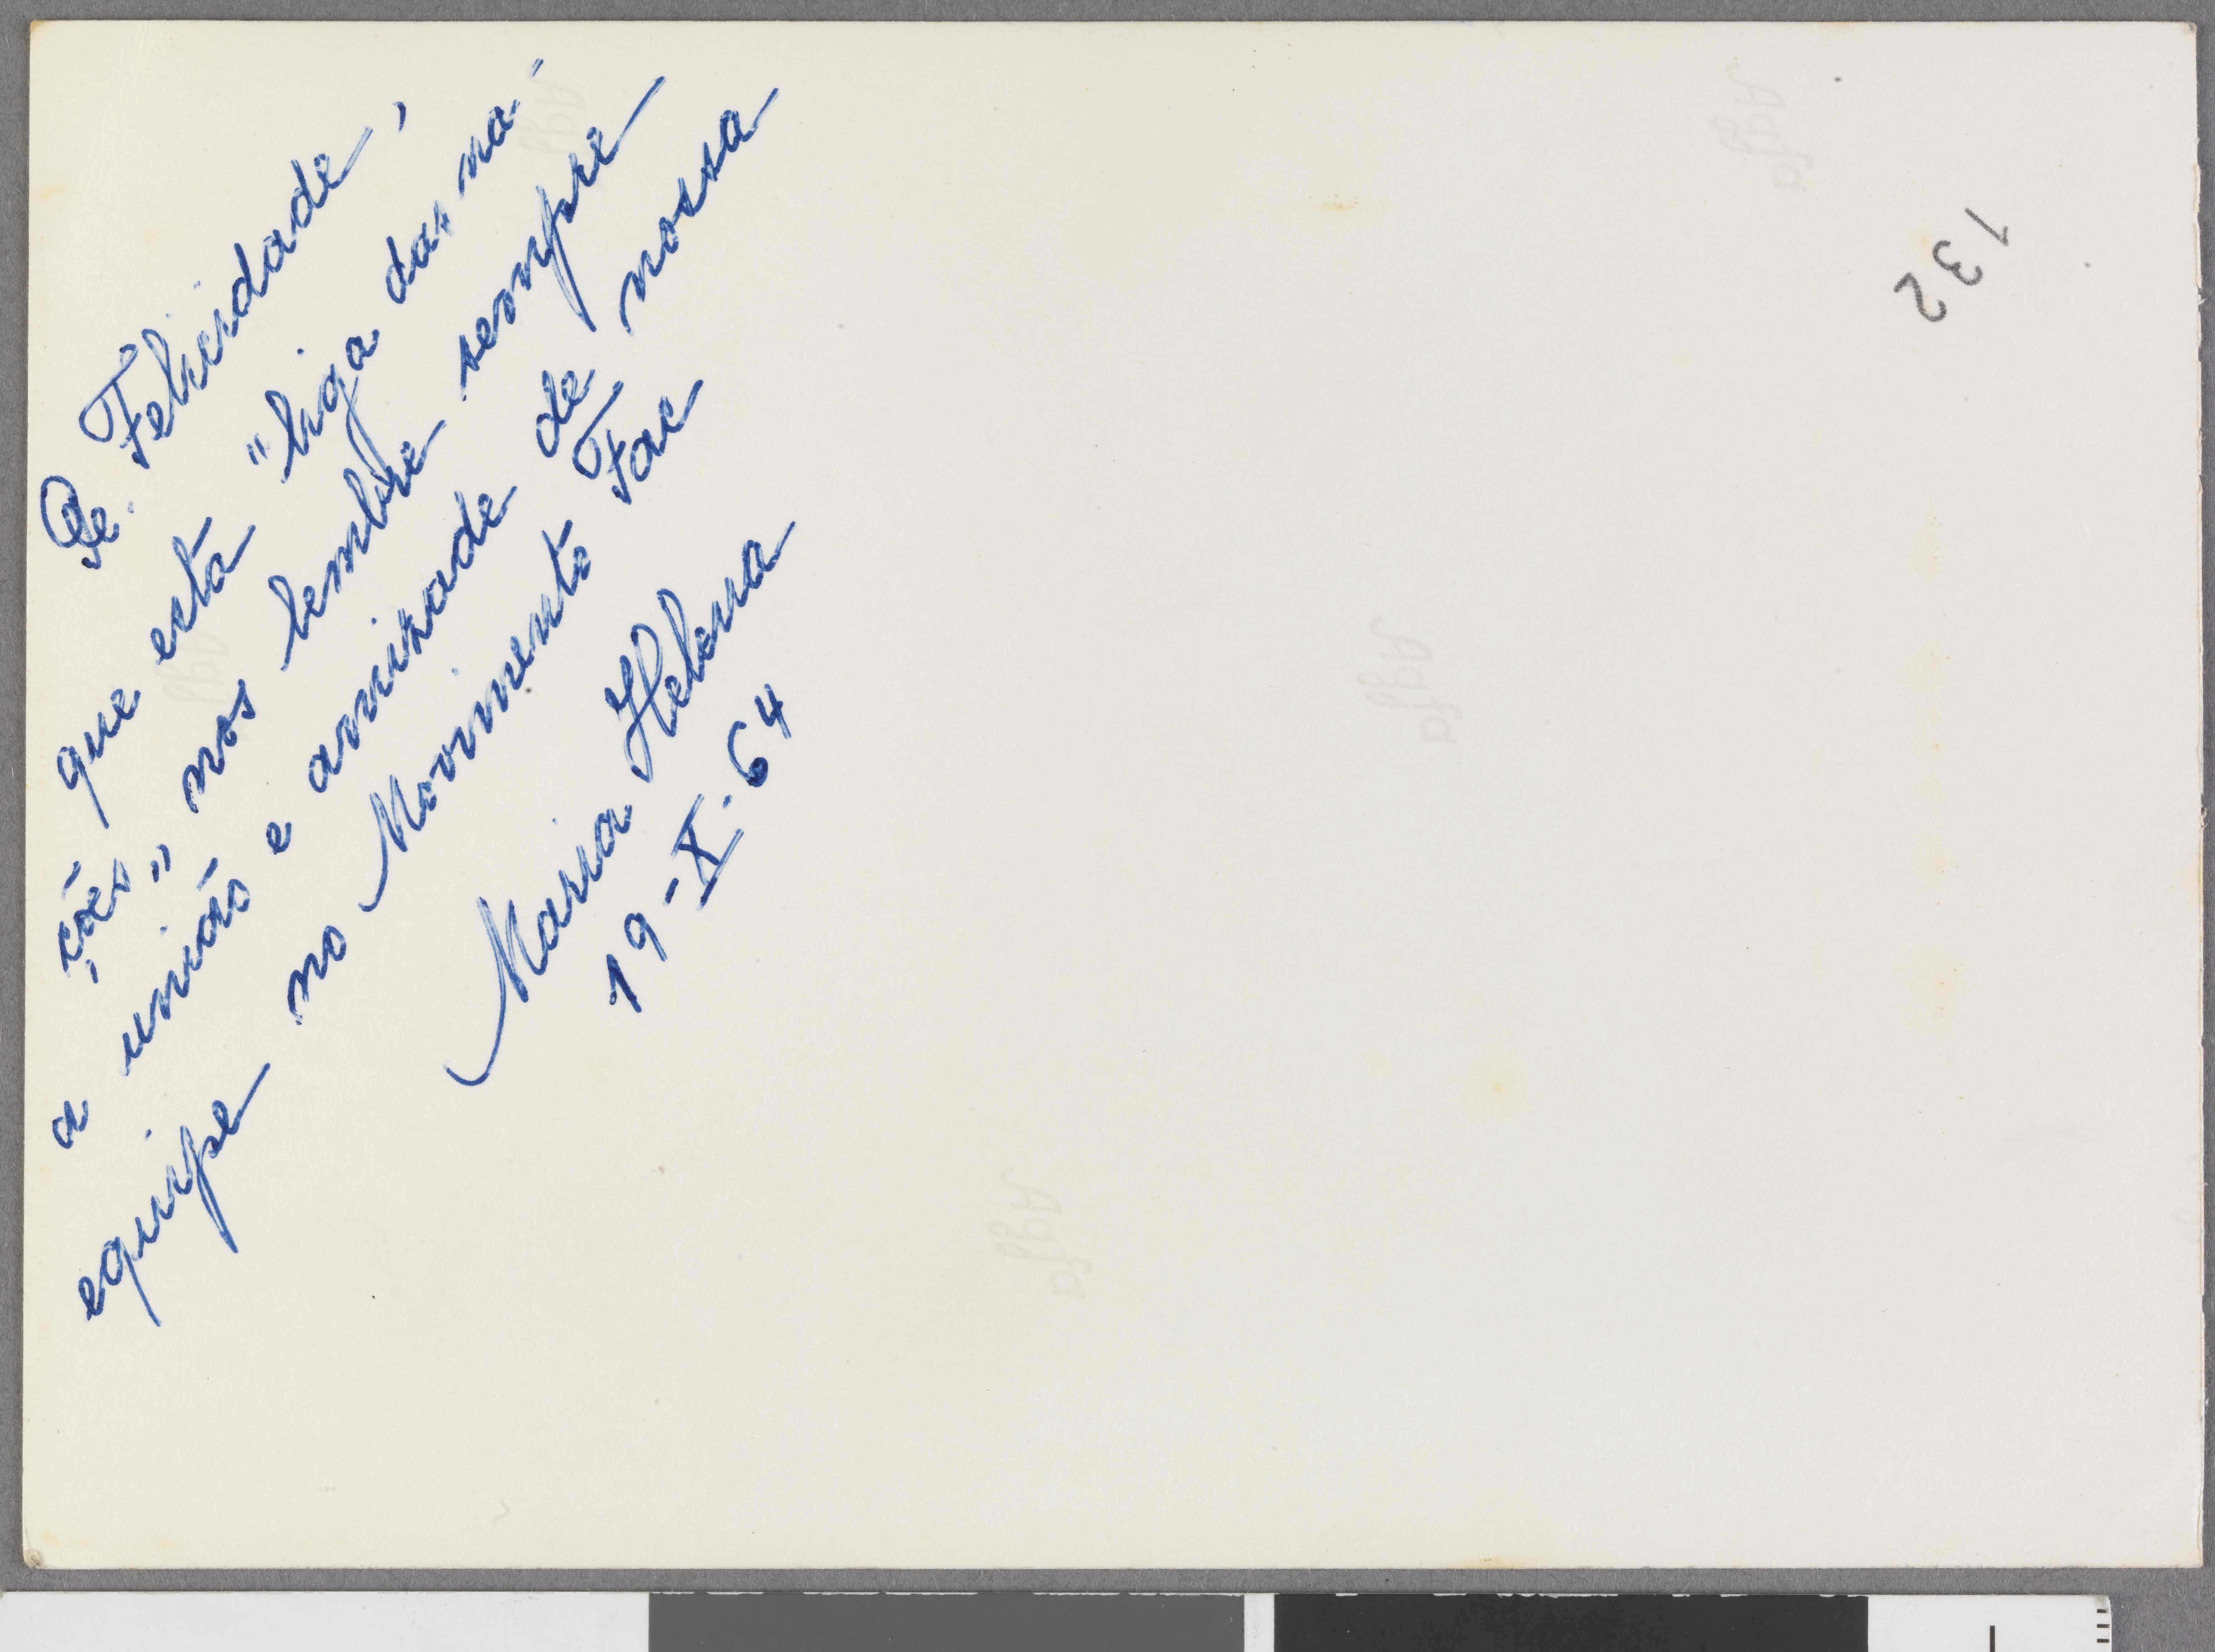 Pe. Felicidade,
que esta "liga das na-
ções" nos lembre sempre
a união e amizade de nossa
equipe no Movimento Fac
Maria Helena
19-X-64
132
Agfa
Agfa
Agfa
Agfa
Agfa